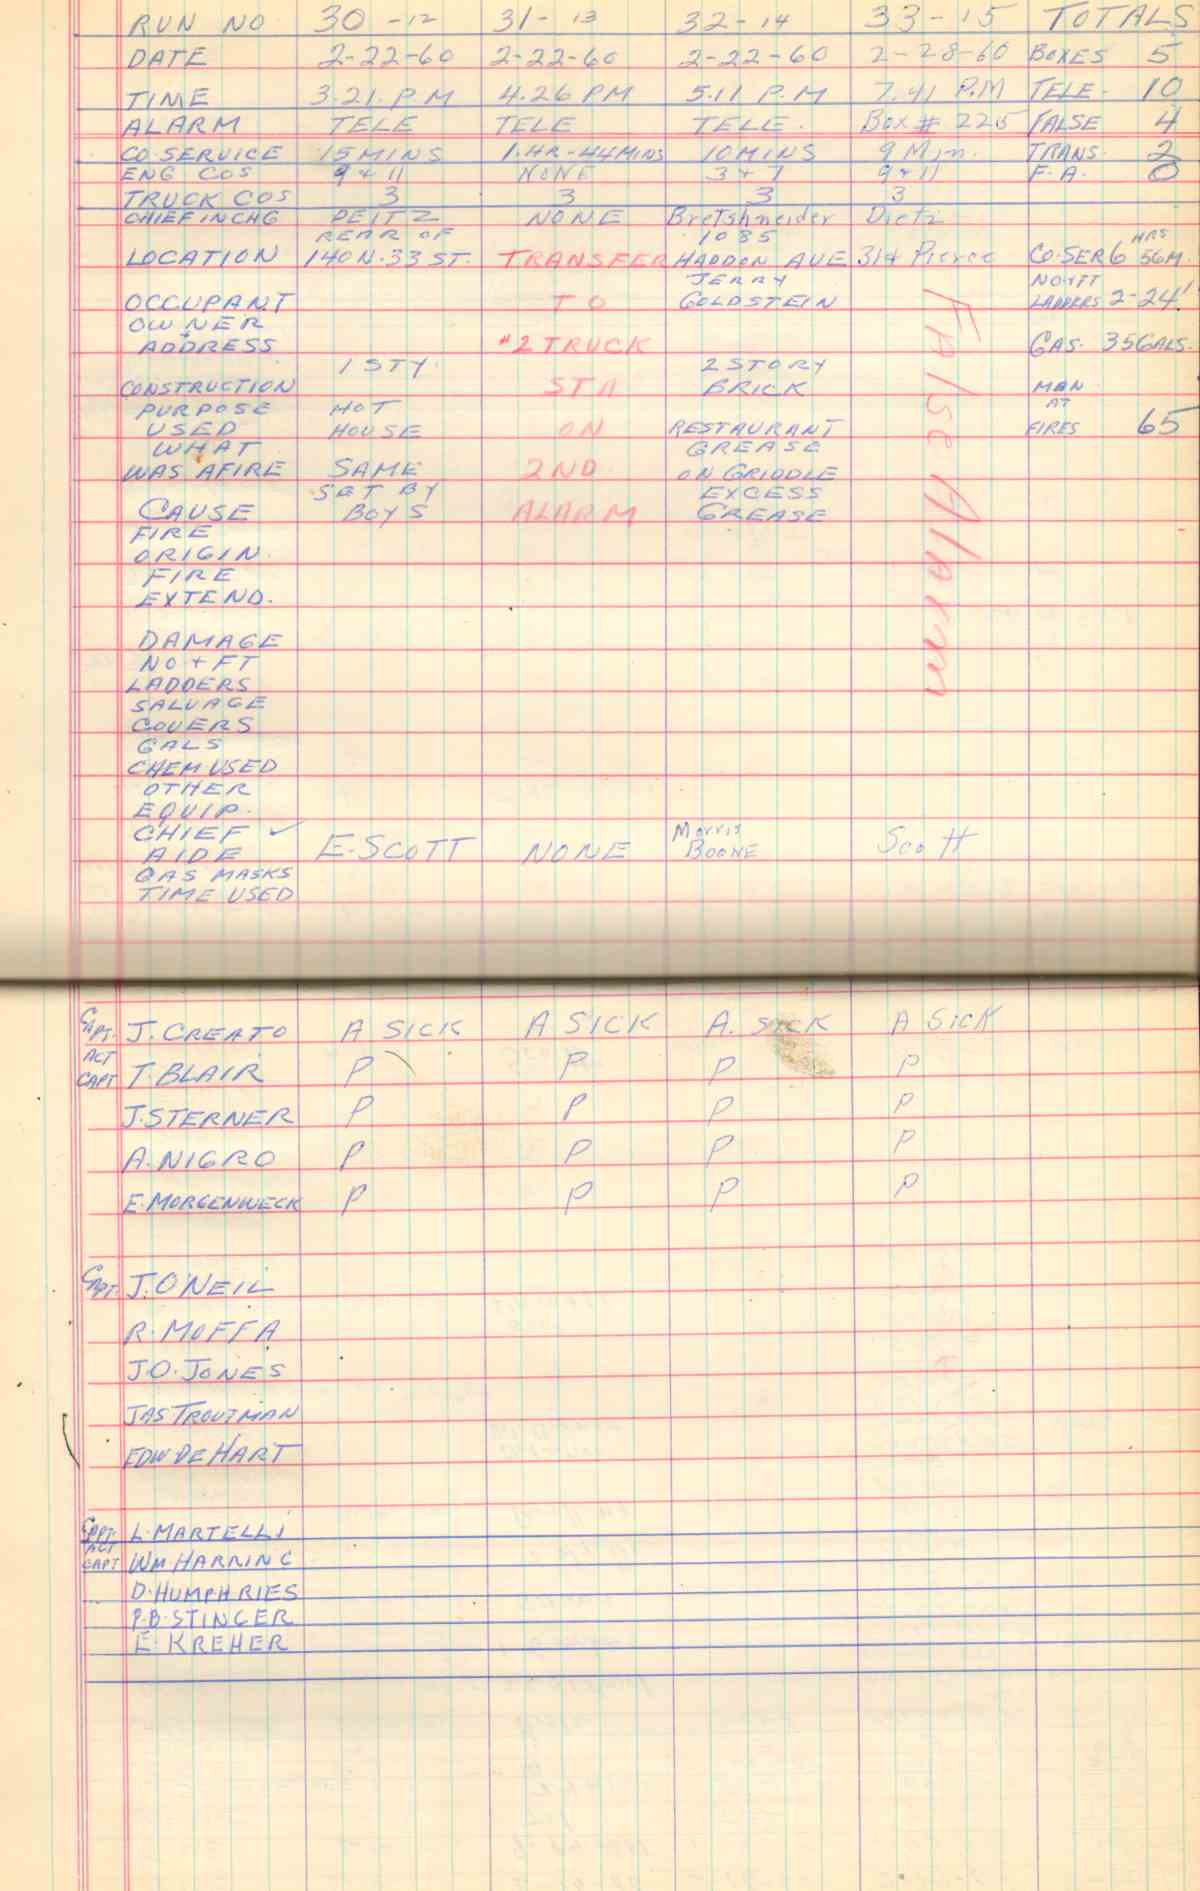 RUN NO 30 -12 31- 13 32-14 33-15 TOTALS
DATE 2-22-60 2-22-60 2-22-60 2-28-60 BOXES 5
TIME 3.21. P.M 4.26 PM 5.11 P.M 7.41 P.M TELE- 10
ALARM TELE TELE TELE. Box # 225 FALSE 4
CO-SERVICE 15 MINS 1.HR-44MINS 10 MINS 9 Min. TRANS. 2
ENG COS 9 & 11 NONE 3 & 7 9 & 11 F.A. 0
TRUCK COS 3 3 3 3
CHIEF IN CHG DEITZ NONE Bretshneider Dietz
REAR OF 1085 HRS
LOCATION 140 N. 33 ST. TRANSFER HADDON AVE 314 Pierce CO-SER 6 56M.
JERRY NO & FT
OCCUPANT TO GOLDSTEIN LADDERS 2-24'
OWNER
ADDRESS #2 TRUCK GAS. 35 GALS.
1 STY. 2 STORY
CONSTRUCTION STA BRICK MAN
PURPOSE HOT AT
USED HOUSE ON RESTAURANT FIRES 65
WHAT GREASE
WAS AFIRE SAME 2ND ON GRIDDLE
SET BY EXCESS
CAUSE BOYS ALARM GREASE
False Alarm
FIRE
ORIGIN.
FIRE
EXTEND.
DAMAGE
NO + FT
LADDERS
SALVAGE
COVERS
GALS
CHEM-USED
OTHER
EQUIP.
CHIEF ✓ Morris
AIDE E-SCOTT NONE BOONE Scott
GAS MASKS
TIME USED
CAPT. J. CREATO A SICK A SICK A. SICK A SICK
ACT
CAPT T. BLAIR P P P P
J. STERNER P P P P
A. NIGRO P P P P
E. MORGENWECK P P P P
CAPT. J. O'NEIL
R. MOFFA
J.O. JONES
JAS TROUTMAN
EDW DE HART
CAPT. L. MARTELLI
ACT
CAPT WM. HARRING
D. HUMPHRIES
P.B. STINGER
E. KREHER